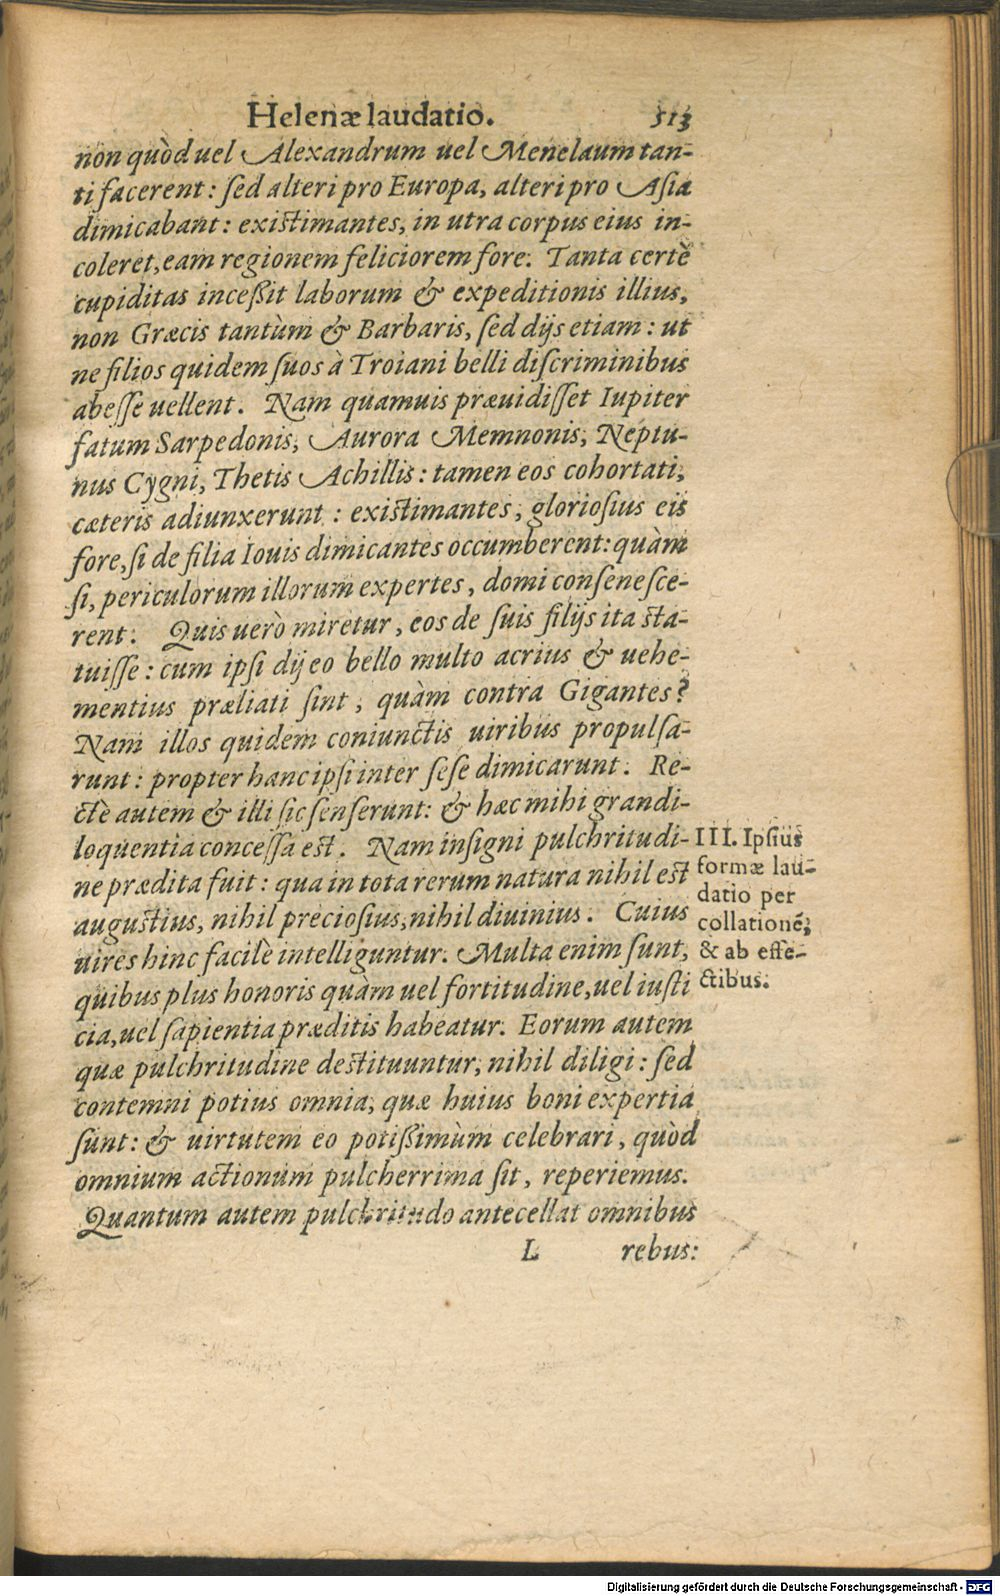 Helenæ laudatio. 513
non quòd uel Alexandrum uel Menelaum tan-
ti facerent: sed alteri pro Europa, alteri pro Asia
dimicabant: existimantes, in utra corpus eius in-
coleret, eam regionem feliciorem fore. Tanta certè
cupiditas inceßit laborum & expeditionis illius,
non Græcis tantùm & Barbaris, sed dijs etiam: ut
ne filios quidem suos à Troiani belli discriminibus
abesse uellent. Nam quamuis præuidisset Iupiter
fatum Sarpedonis, Aurora Memnonis, Neptu-
nus Cygni, Thetis Achillis: tamen eos cohortati,
cæteris adiunxerunt: existimantes, gloriosius eis
fore, si de filia Iouis dimicantes occumberent: quàm
si, periculorum illorum expertes, domi consenesce-
rent. Quis uerò miretur, eos de suis filijs ita sta-
tuisse: cum ipsi dij eo bello multo acrius & uehe-
mentius præliati sint, quàm contra Gigantes?
Nam illos quidem coniunctis uiribus propulsa-
runt: propter hanc ipsi inter sese dimicarunt. Re-
ctè autem & illi sic senserunt: & hæc mihi grandi-
loquentia concessa est. Nam insigni pulchritudi-
ne prædita fuit: qua in tota rerum natura nihil est
augustius, nihil preciosius, nihil diuinius. Cuius
uires hinc facilè intelliguntur. Multa enim sunt,
quibus plus honoris quàm uel fortitudine, uel iusti
cia, uel sapientia præditis habeatur. Eorum autem
quæ pulchritudine destituuntur, nihil diligi: sed
contemni potius omnia, quæ huius boni expertia
sunt: & uirtutem eo potißimùm celebrari, quòd
omnium actionum pulcherrima sit, reperiemus.
Quantum autem pulchritudo antecellat omnibus
L rebus:
III. Ipsius
formæ lau-
datio per
collationē,
& ab effe-
ctibus.
Digitalisierung gefördert durch die Deutsche Forschungsgemeinschaft - DFG